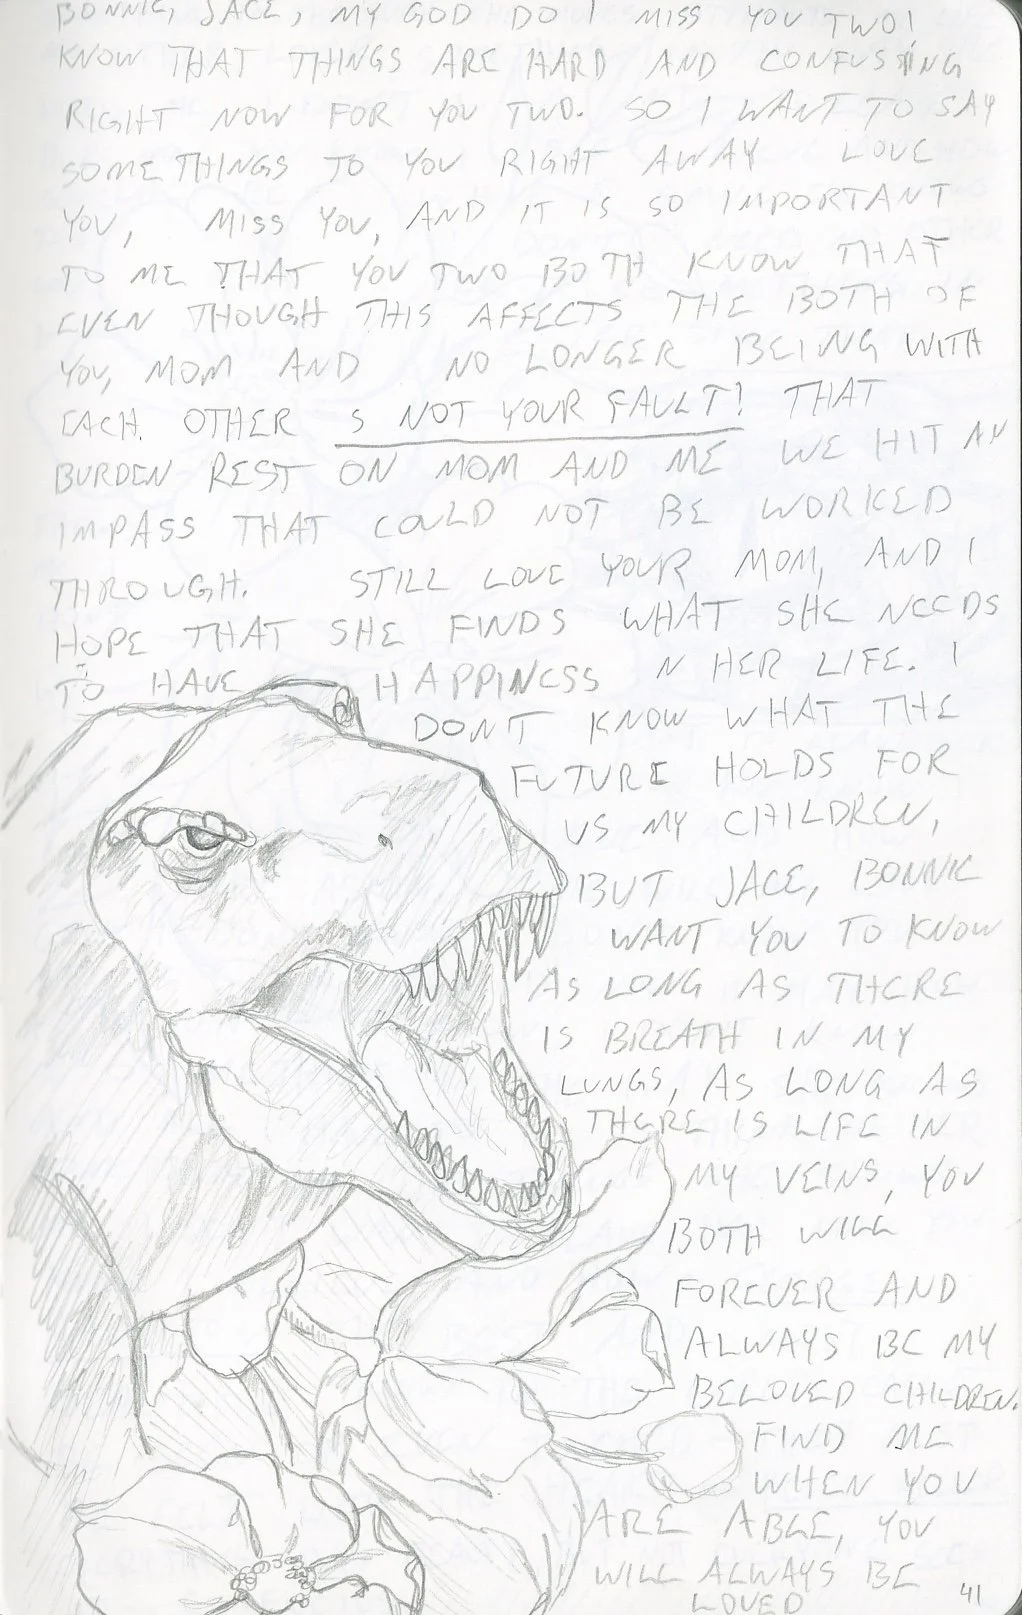 BONNIE, JACE, MY GOD DO I MISS YOU TWO! I
KNOW THAT THINGS ARE HARD AND CONFUSING
RIGHT NOW FOR YOU TWO. SO I WANT TO SAY
SOME THINGS TO YOU RIGHT AWAY LOVE
YOU, MISS YOU, AND IT IS SO IMPORTANT
TO ME THAT YOU TWO BOTH KNOW THAT
EVEN THOUGH THIS AFFECTS THE BOTH OF
YOU, MOM AND NO LONGER BEING WITH
EACH OTHER S NOT YOUR FAULT! THAT
BURDEN REST ON MOM AND ME WE HIT AN
IMPASS THAT COULD NOT BE WORKED
THROUGH. STILL LOVE YOUR MOM, AND I
HOPE THAT SHE FINDS WHAT SHE NEEDS
TO HAVE HAPPINESS N HER LIFE. I
DON'T KNOW WHAT THE
FUTURE HOLDS FOR
US MY CHILDREN,
BUT JACE, BONNIE
WANT YOU TO KNOW
AS LONG AS THERE
IS BREATH IN MY
LUNGS, AS LONG AS
THERE IS LIFE IN
MY VEINS, YOU
BOTH WILL
FOREVER AND
ALWAYS BE MY
BELOVED CHILDREN.
FIND ME
WHEN YOU
ARE ABLE, YOU
WILL ALWAYS BE
LOVED
41